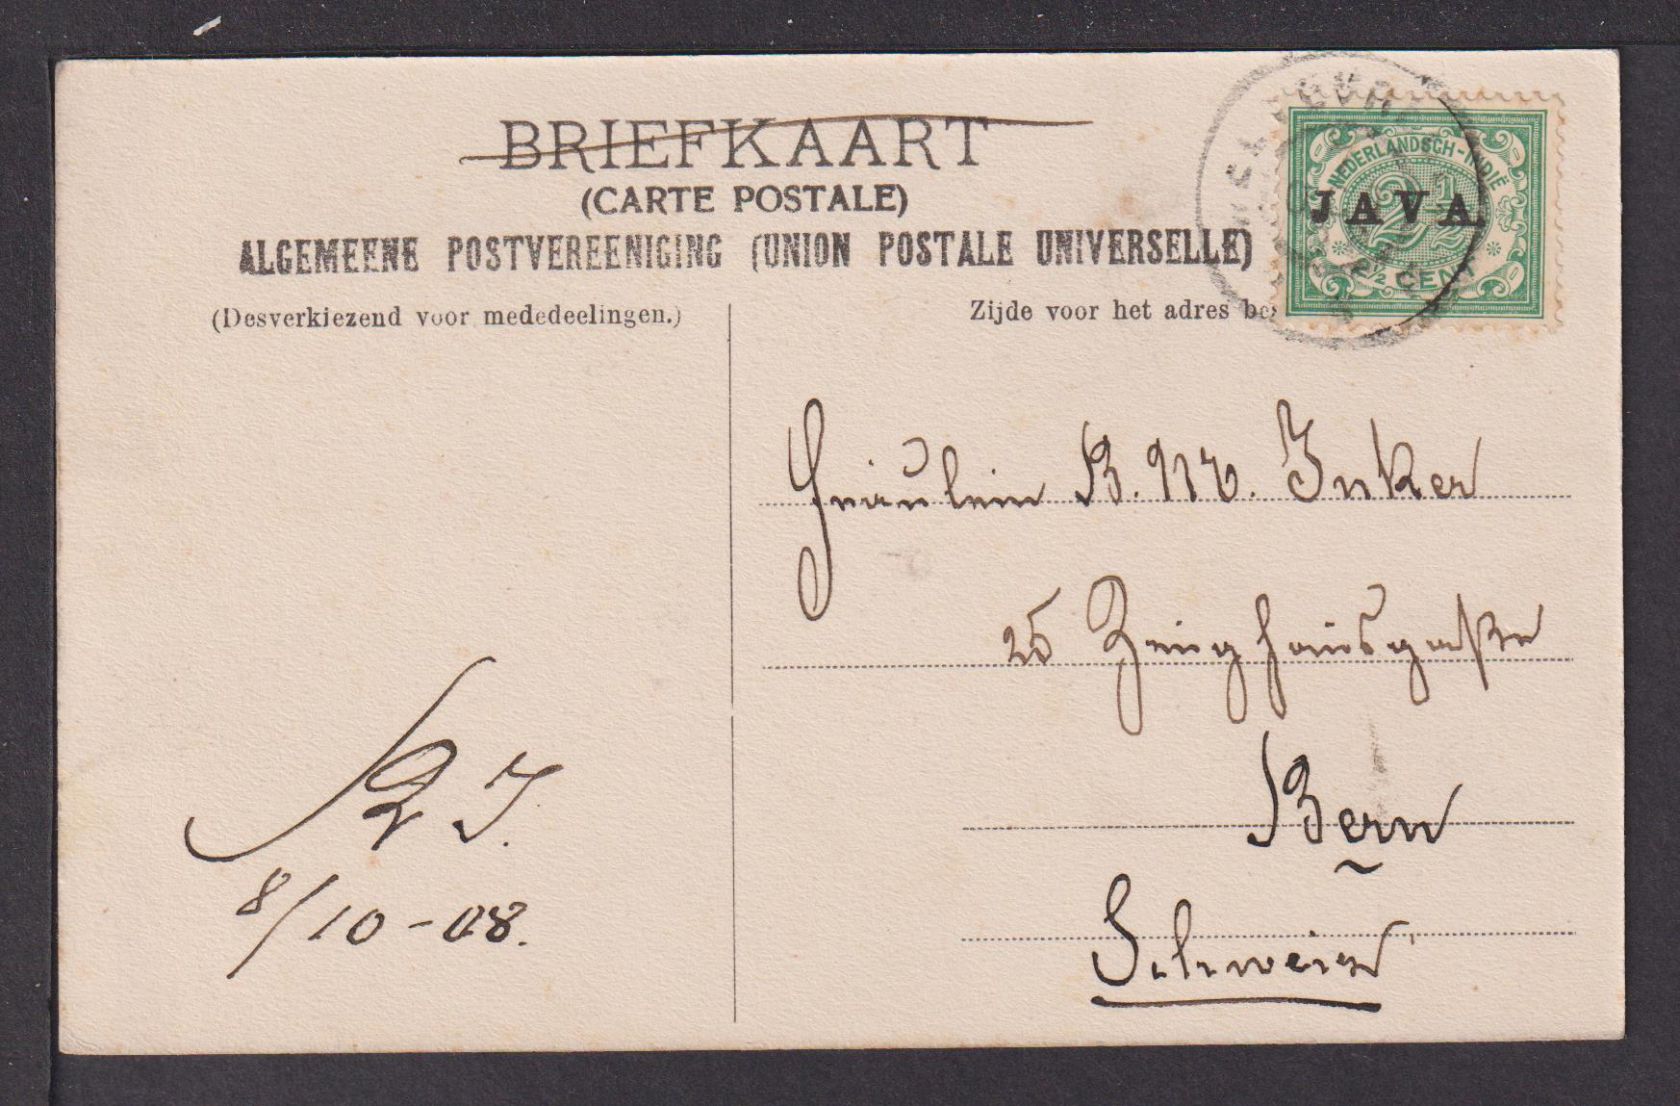 BRIEFKAART
(CARTE POSTALE)
ALGEMEENE POSTVEREENIGING (UNION POSTALE UNIVERSELLE)
(Desverkiezend voor mededeelingen.)
Zijde voor het adres be
NEDERLANDSCH-INDIË
2½
JAVA.
2½ CENT
Fräulein B. W. Inker
25 Zeughausgaße
Bern
Schweiz
8/10-08.